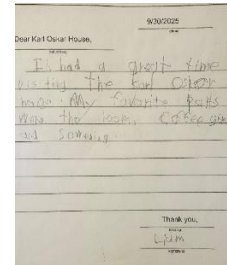 9/30/2025
Dear Karl Oskar House,
I had a great time
visiting the Karl Oskar
house. My favorite parts
were the loom, Coffee
and
Thank you,
Liam